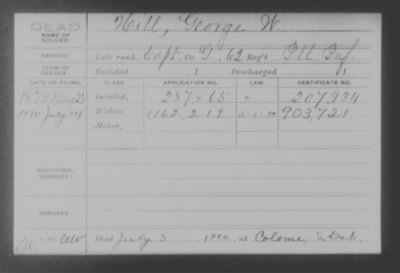 DEAD
NAME OF SOLDIER:
Hill, George W
SERVICE:
Late rank, Capt. Co. G, 62 Reg't Ill Inf.
TERM OF SERVICE:
Enlisted , 1 Discharged , 1
DATE OF FILING. CLASS. APPLICATION NO. LAW. CERTIFICATE NO.
1879 May 23 Invalid, 287.865 207,934
1920 July 14 Widow, 1,162,219 903,721
Minor,
ADDITIONAL SERVICES:
REMARKS:
Died July 3 1920, at Colome, S. Dak.